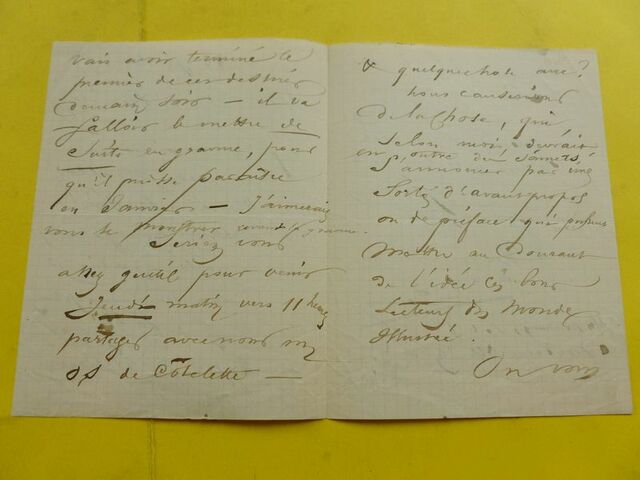 vais avoir terminé le
premier de ces dessins
demain soir — il va
falloir le mettre de
suite en gravure, pour
qu'il puisse paraitre
en Janvier — J'aimerais
vous le montrer avant la gravure.
Seriez vous
assez gentil pour venir
Jeudi matin vers 11 heures
partager avec nous un
os de Côtelette —
quelque chose
nous causerions
de la chose, qui
selon moi, devrait
en outre
s'annoncer par une
sorte d'avant propos
ou de préface qui
mettre au Courant
de l'idée les bons
Lecteurs du Monde
Illustré.
On vous